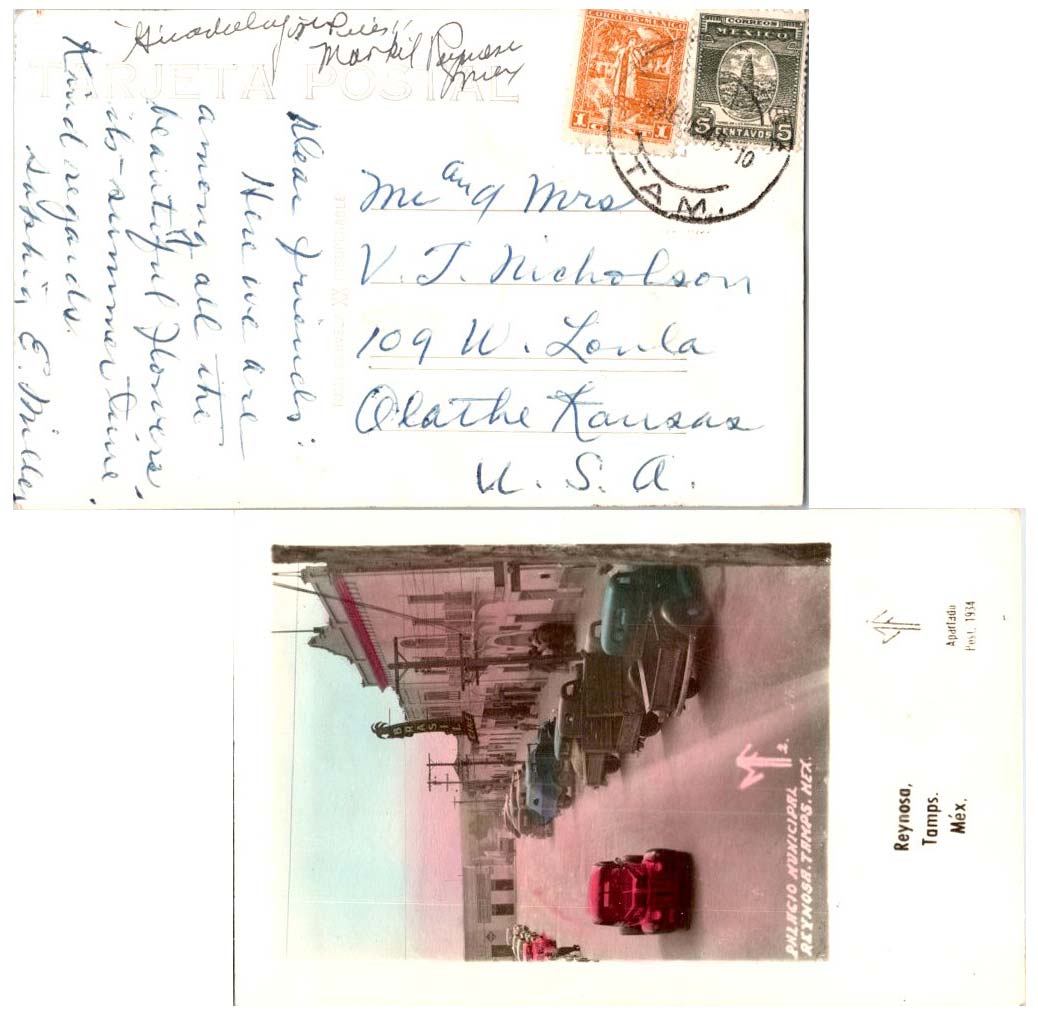 TARJETA POSTAL
Mex
CORREOS · MEXICO
1 CENTAVO 1
CORREOS
MEXICO
5 CENTAVOS 5
10
TAM.
Dear friends:
Here we are
among all the
beautiful flowers,
its summer time.
Kind regards.
E. Miller
Mr and Mrs
V. T. Nicholson
109 W. Loula
Olathe Kansas
U. S. A.
BRASIL
2.
PALACIO MUNICIPAL
REYNOSA. TAMPS. MEX.
Apartado
Post. 1934
Reynosa,
Tamps.
Méx.